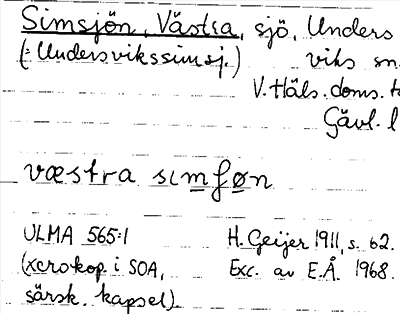 Simsjön, Västra, sjö, Unders
(= Undersvikssimsj.) viks sn
V. Häls. doms. t
Gävl. l
væstra sımʃøn
ULMA 565:1 H. Geijer 1911, s. 62.
(xerokop. i SOA, Exc. av E.Å. 1968.
särsk. kapsel)